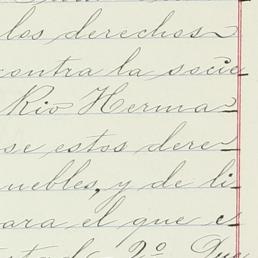 los derechos
contra la socie
Rio Herma
se estos dere
uebles, y de li
para el que e
2º Que